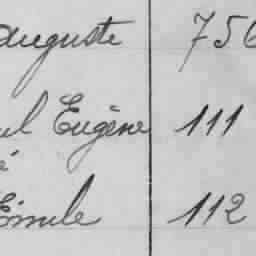 Auguste 756
ul Eugène 111
é
Emile 112